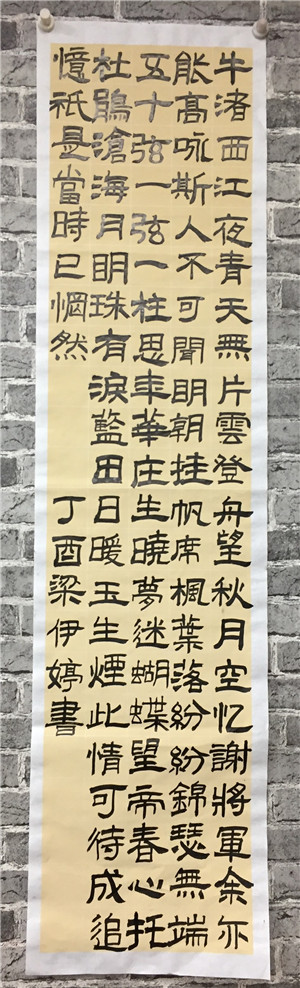 牛渚西江夜青天無片雲登舟望秋月空忆謝將軍余亦
能高咏斯人不可聞明朝挂帆席楓葉落紛紛錦瑟無端
五十弦一弦一柱思年華庄生曉夢迷蝴蝶望帝春心托
杜鵑滄海月明珠有淚藍田日暖玉生煙此情可待成追
憶祇是當時已惘然
丁酉梁伊婷書